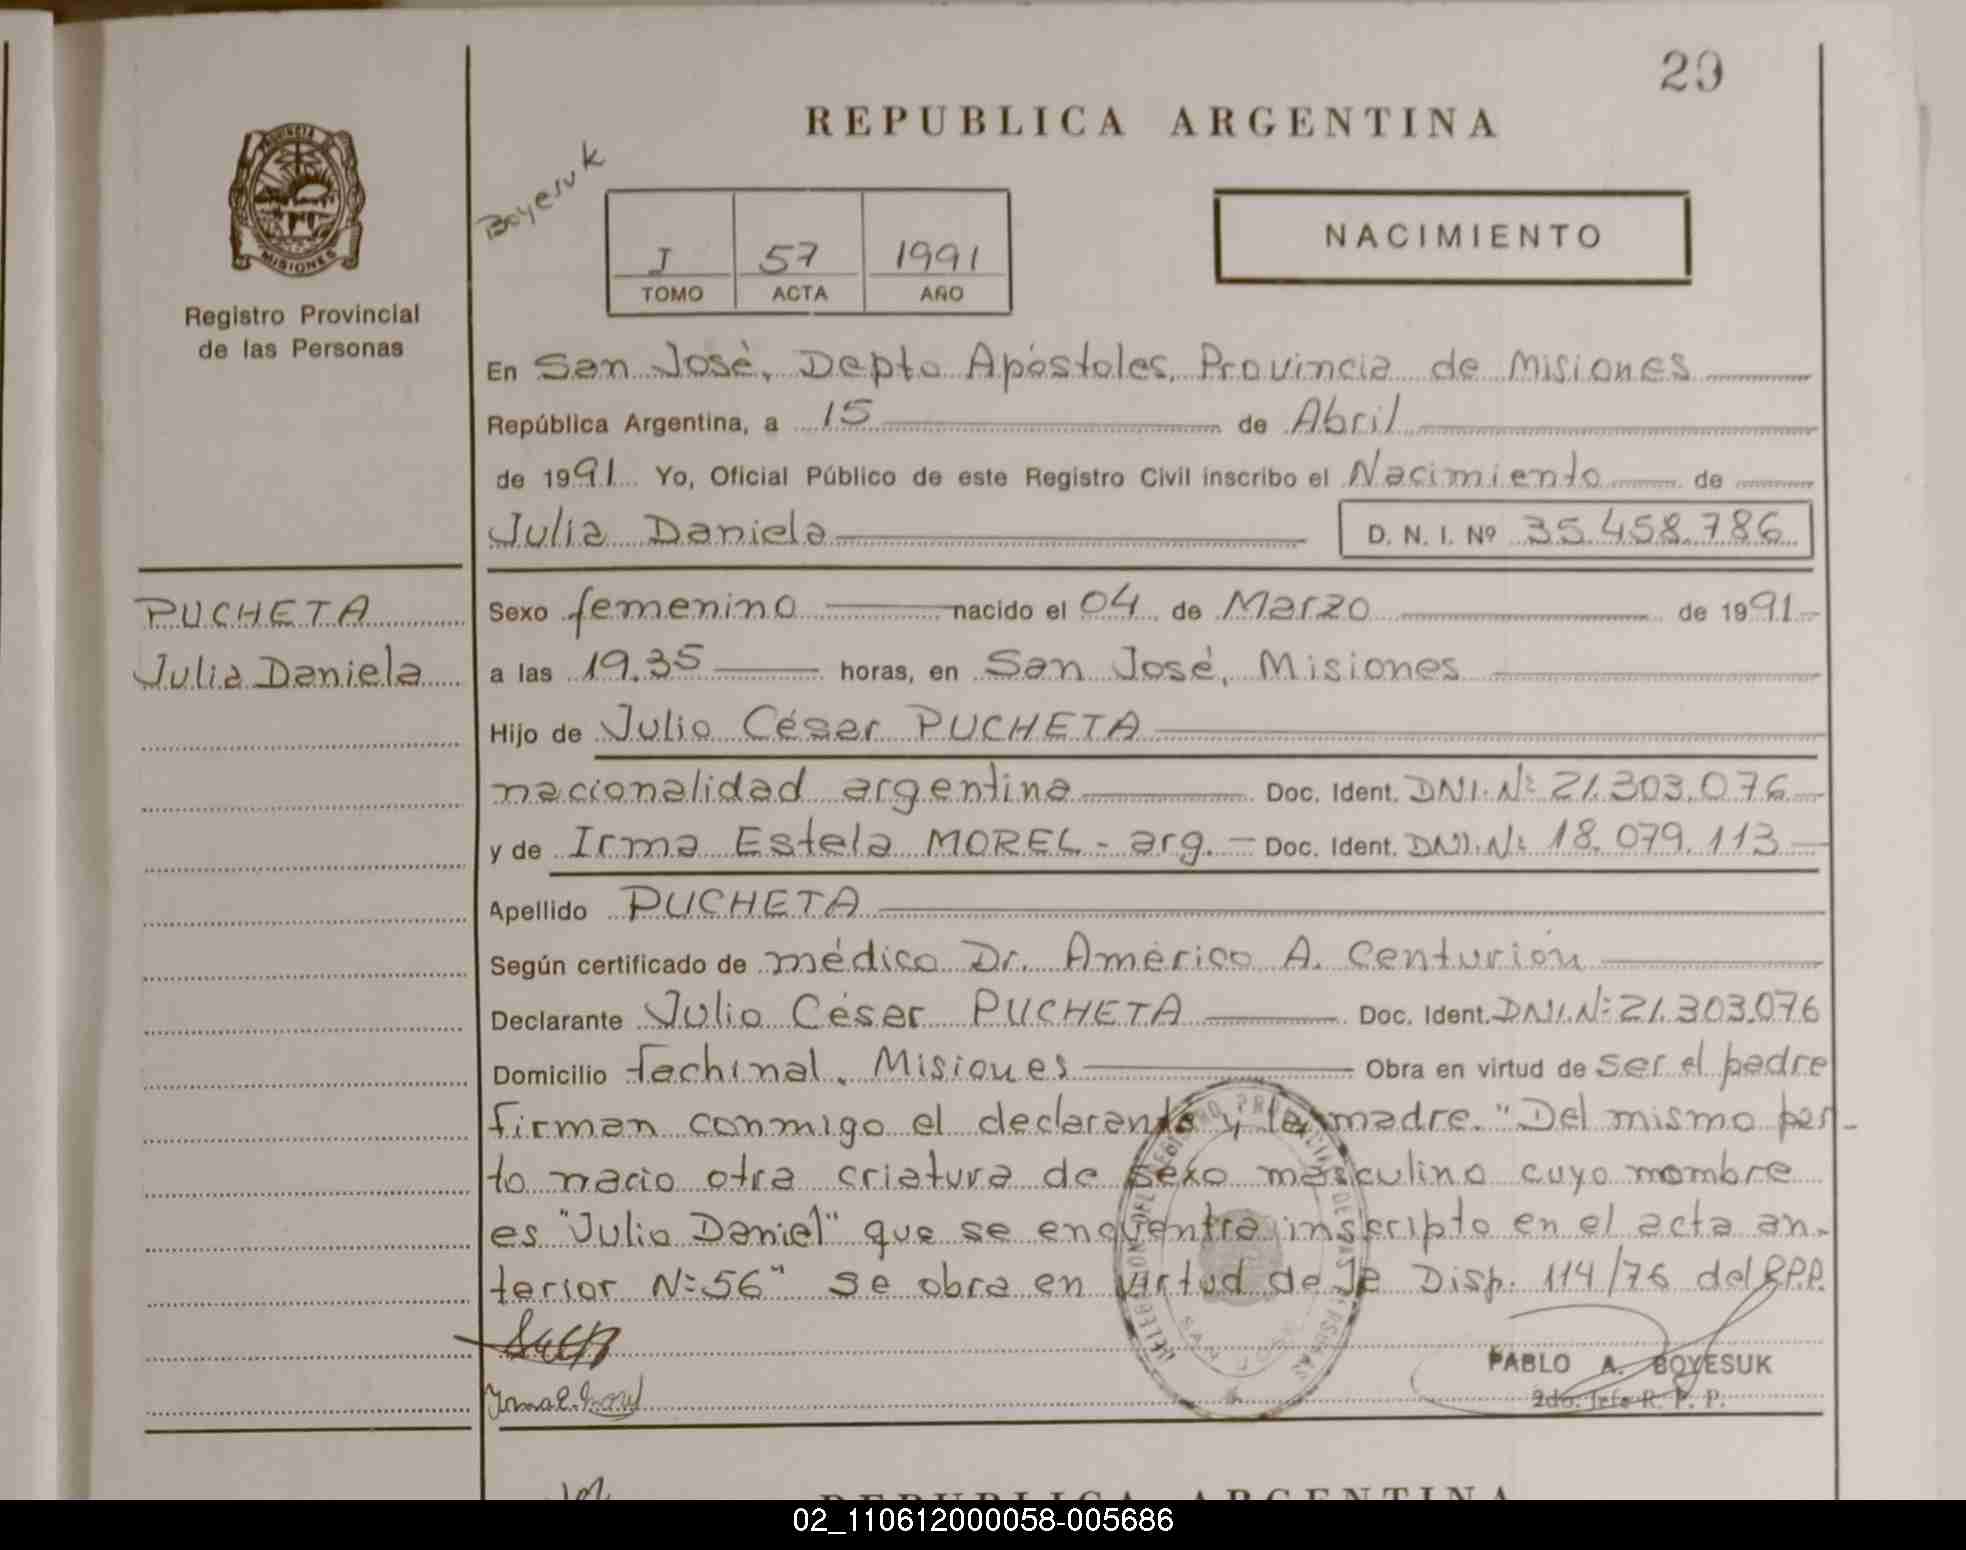 29
REPUBLICA ARGENTINA
PROVINCIA
MISIONES
Registro Provincial
de las Personas
Boyesuk
I 57 1991
TOMO ACTA AÑO
NACIMIENTO
En San José, Depto Apóstoles, Provincia de Misiones
República Argentina, a 15 de Abril
de 1991 Yo, Oficial Público de este Registro Civil inscribo el Nacimiento de
Julia Daniela D. N. I. Nº 35.458.786
PUCHETA
Julia Daniela
Sexo femenino nacido el 04 de Marzo de 1991
a las 19.35 horas, en San José, Misiones
Hijo de Julio César PUCHETA
nacionalidad argentina Doc. Ident. DNI. Nº 21.303.076
y de Irma Estela MOREL - arg. - Doc. Ident. DNI. Nº 18.079.113
Apellido PUCHETA
Según certificado de médico Dr. Américo A. Centurión
Declarante Julio César PUCHETA Doc. Ident. DNI. Nº 21.303.076
Domicilio Fachinal, Misiones Obra en virtud de ser el padre
firman conmigo el declarante y la madre. "Del mismo par-
to nacio otra criatura de sexo masculino cuyo nombre
es "Julio Daniel" que se encuentra inscripto en el acta an-
terior Nº 56" Se obra en virtud de la Disp. 114/76 del R.P.P.
PABLO A. BOYESUK
2do. Jefe R. P. P.
Irma E. Morel
REPUBLICA ARGENTINA
02_110612000058-005686